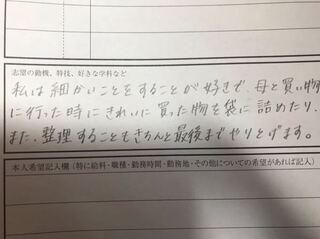 志望の動機、特技、好きな学科など
私は細かいことをすることが好きで、母と買い物
に行った時にきれいに買った物を袋に詰めたり、
また、整理することもきちんと最後までやりとげます。
本人希望記入欄(特に給料・職種・勤務時間・勤務地・その他についての希望があれば記入)